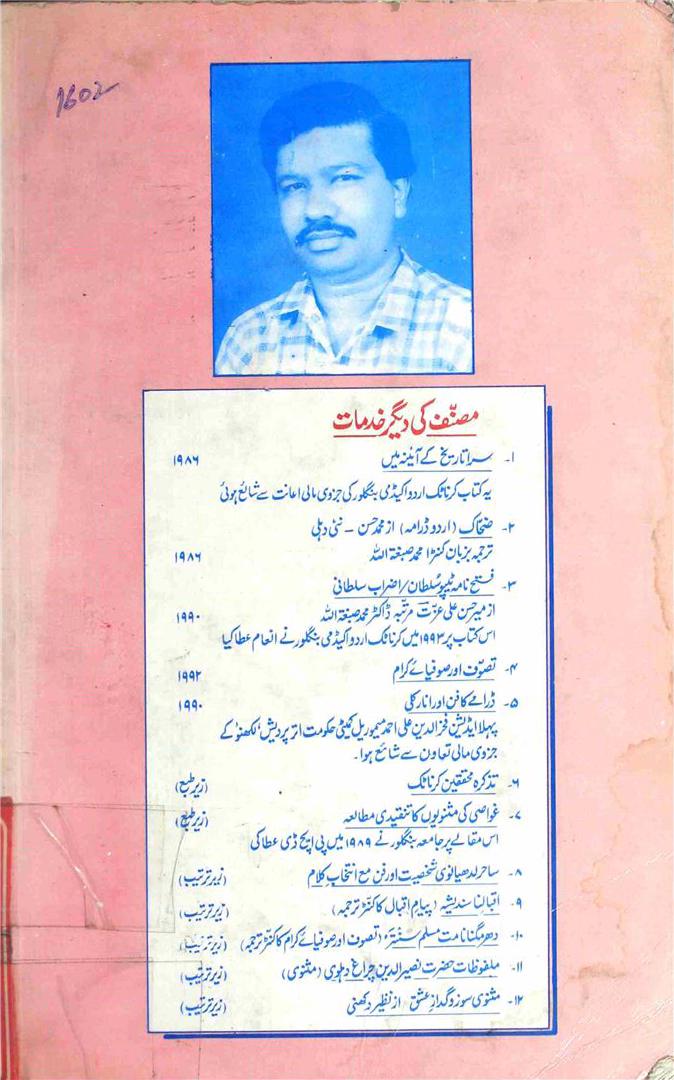 1602
مصنّف کی دیگر خدمات
۱۔ سرا تاریخ کے آئینہ میں ۱۹۸۶
یہ کتاب کرناٹک اردو اکیڈمی بنگلور کی جزوی مالی اعانت سے شائع ہوئی
۲۔ ضحاک (اردو ڈرامہ) از محمد حسن ۔ نئی دہلی
ترجمہ بزبان کنڑا محمد صبغۃ اللہ ۱۹۸۶
۳۔ فتح نامہ ٹیپو سلطان/اضراب سلطانی
از میر حسن علی عزّت مرتبہ ڈاکٹر محمد صبغۃ اللہ ۱۹۹۰
اس کتاب پر ۱۹۹۳ میں کرناٹک اردو اکیڈمی بنگلور نے انعام عطا کیا
۴۔ تصوّف اور صوفیائے کرام ۱۹۹۲
۵۔ ڈرامے کا فن اور انارکلی ۱۹۹۰
پہلا ایڈیشن فخر الدین علی احمد میموریل کمیٹی حکومت اتر پردیش، لکھنو کے
جزوی مالی تعاون سے شائع ہوا۔
۶۔ تذکرہ محققین کرناٹک (زیر طبع)
۷۔ غواصی کی مثنویوں کا تنقیدی مطالعہ (زیر طبع)
اس مقالے پر جامعہ بنگلور نے ۱۹۸۹ میں پی ایچ ڈی عطا کی
۸۔ ساحر لدھیانوی شخصیت اور فن مع انتخاب کلام (زیر ترتیب)
۹۔ اقبالنا سندیشہ (پیام اقبال کا کنڑ ترجمہ) (زیر ترتیب)
۱۰۔ دھرمگنانامت مسلم سنترُ (تصوف اور صوفیائے کرام کا کنڑ ترجمہ) (زیر ترتیب)
۱۱۔ ملفوظات حضرت نصیر الدین چراغ دہلوی (مثنوی) (زیر ترتیب)
۱۲۔ مثنوی سوز و گداز عشق از نظیر دکھنی (زیر ترتیب)